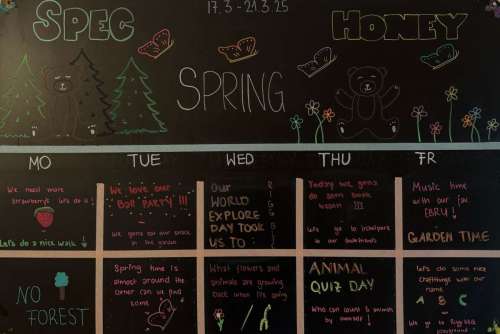 17.3 - 21.3.25
SPEC
HONEY
SPRING
MO
TUE
WED
THU
FR
We need more
strawberrys let's do a
Let's do a nice walk !
We love our
Ball PARTY !!!
We gonna eat our snack
in the garden
Our
WORLD
EXPLORE
DAY TOOK
US TO :
Today we gona
do som book
We gona to
Music time
with our joe
EBRU !
GARDEN TIME
NO
FOREST
Spring time is
almost around the
corner can us find
some
What flowers and
animals are growing
back when it's spring
ANIMAL
QUIZ DAY
Who can count 5 animals
by yourself !
Let's do some nice
craftthings with our
name
A B C
We go to
playground